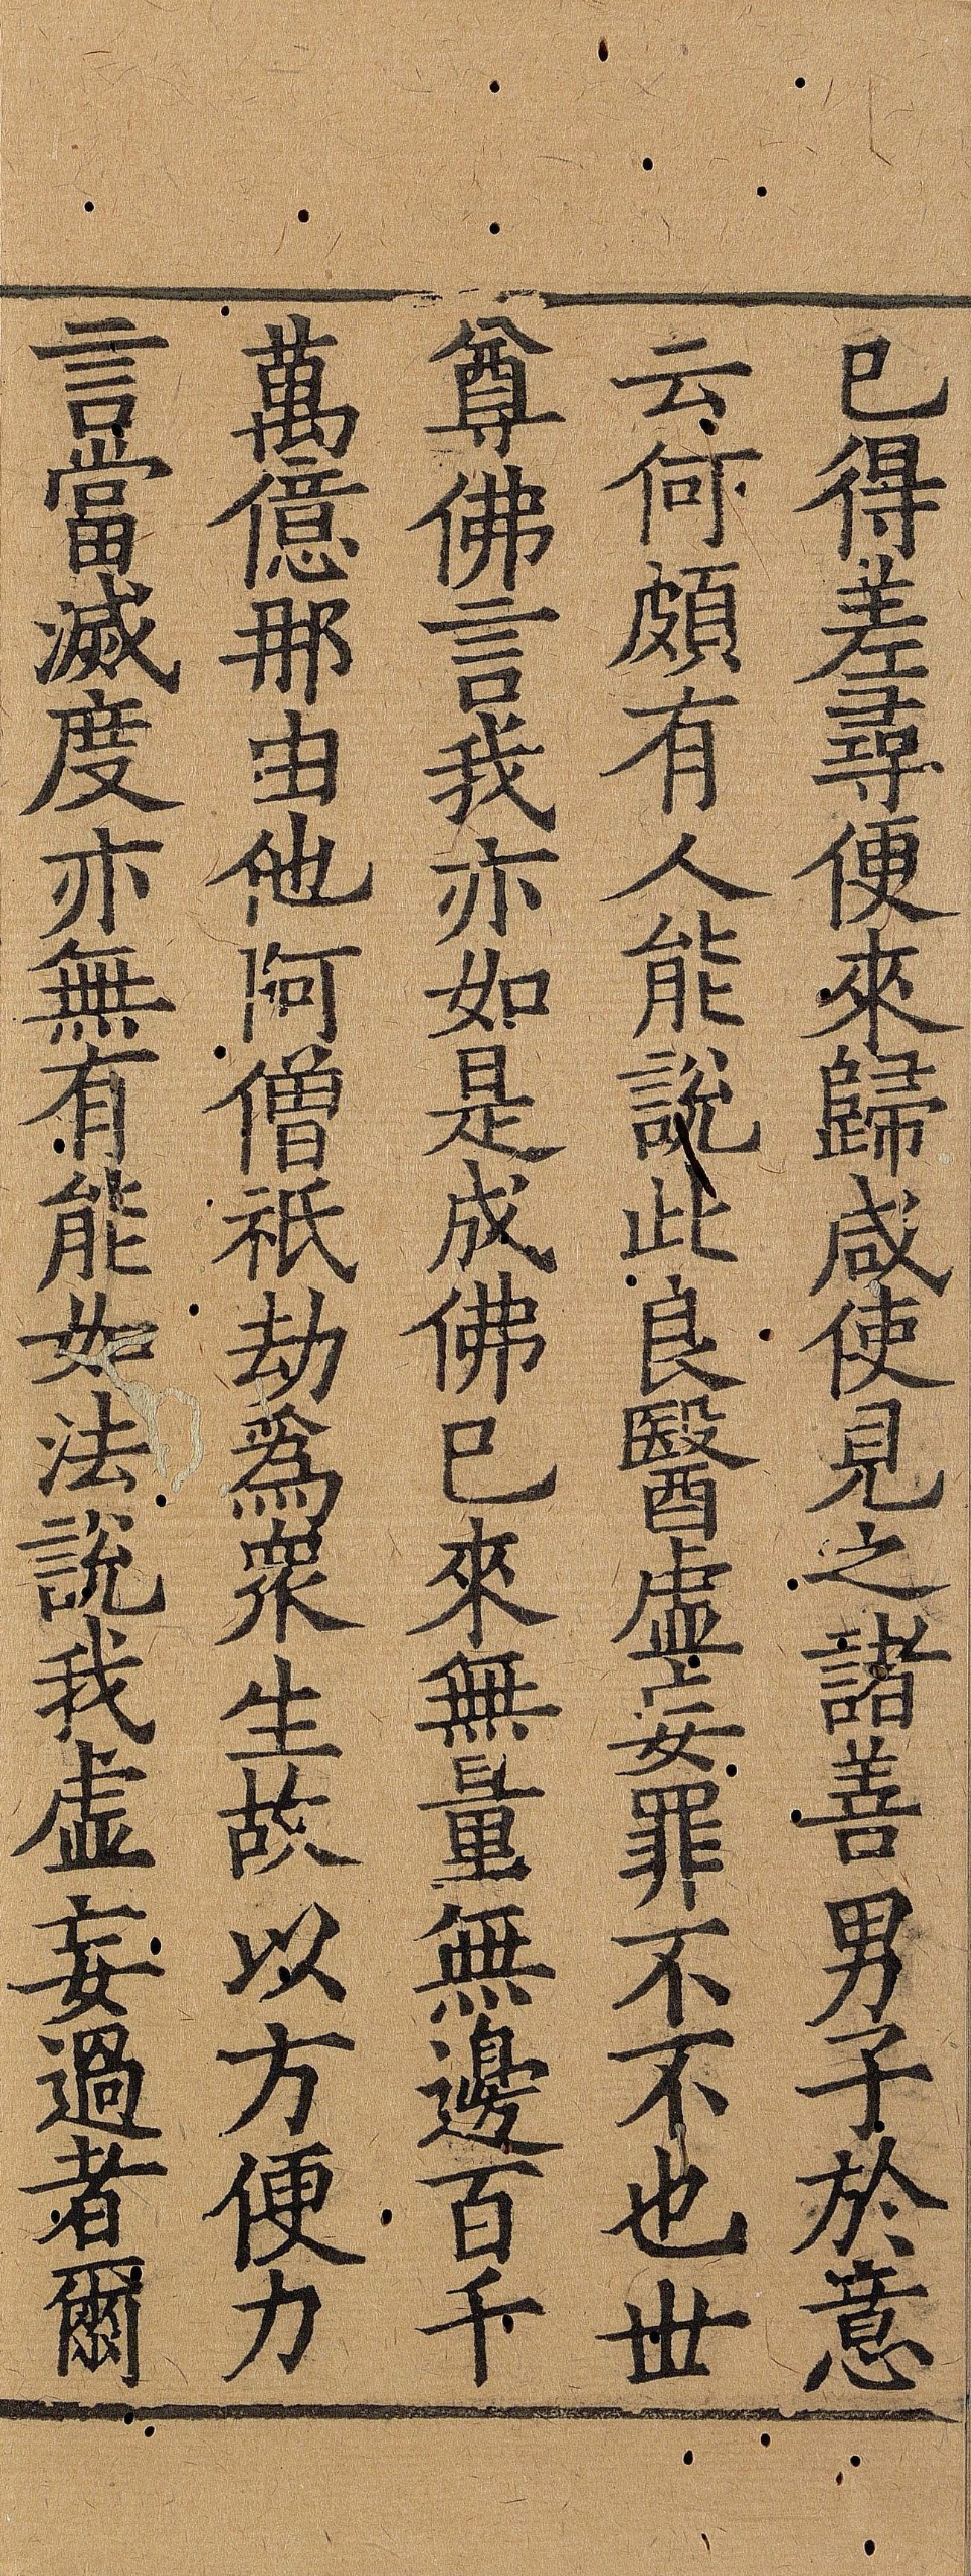 已得差尋便來歸咸使見之諸善男子於意
云何頗有人能說此良醫虛妄罪不不也世
尊佛言我亦如是成佛已來無量無邊百千
萬億那由他阿僧祇劫為眾生故以方便力
言當滅度亦無有能如法說我虛妄過者爾